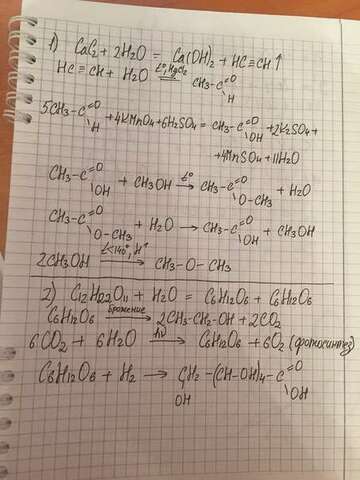 1) CaC₂ + 2H₂O = Ca(OH)₂ + HC≡CH↑
HC≡CH + H₂O =(t°, HgCl₂) CH₃-C(=O)H
5CH₃-C(=O)H + 4KMnO₄ + 6H₂SO₄ = CH₃-C(=O)OH + 2K₂SO₄ +
+ 4MnSO₄ + 11H₂O
CH₃-C(=O)OH + CH₃OH →(t°) CH₃-C(=O)O-CH₃ + H₂O
CH₃-C(=O)O-CH₃ + H₂O → CH₃-C(=O)OH + CH₃OH
2CH₃OH →(t<140°, H⁺) CH₃-O-CH₃
2) C₁₂H₂₂O₁₁ + H₂O = C₆H₁₂O₆ + C₆H₁₂O₆
C₆H₁₂O₆ →(брожение) 2CH₃-CH₂-OH + 2CO₂
6CO₂ + 6H₂O →(hν) C₆H₁₂O₆ + 6O₂ (фотосинтез)
C₆H₁₂O₆ + H₂ → CH₂(OH)-(CH-OH)₄-C(=O)OH